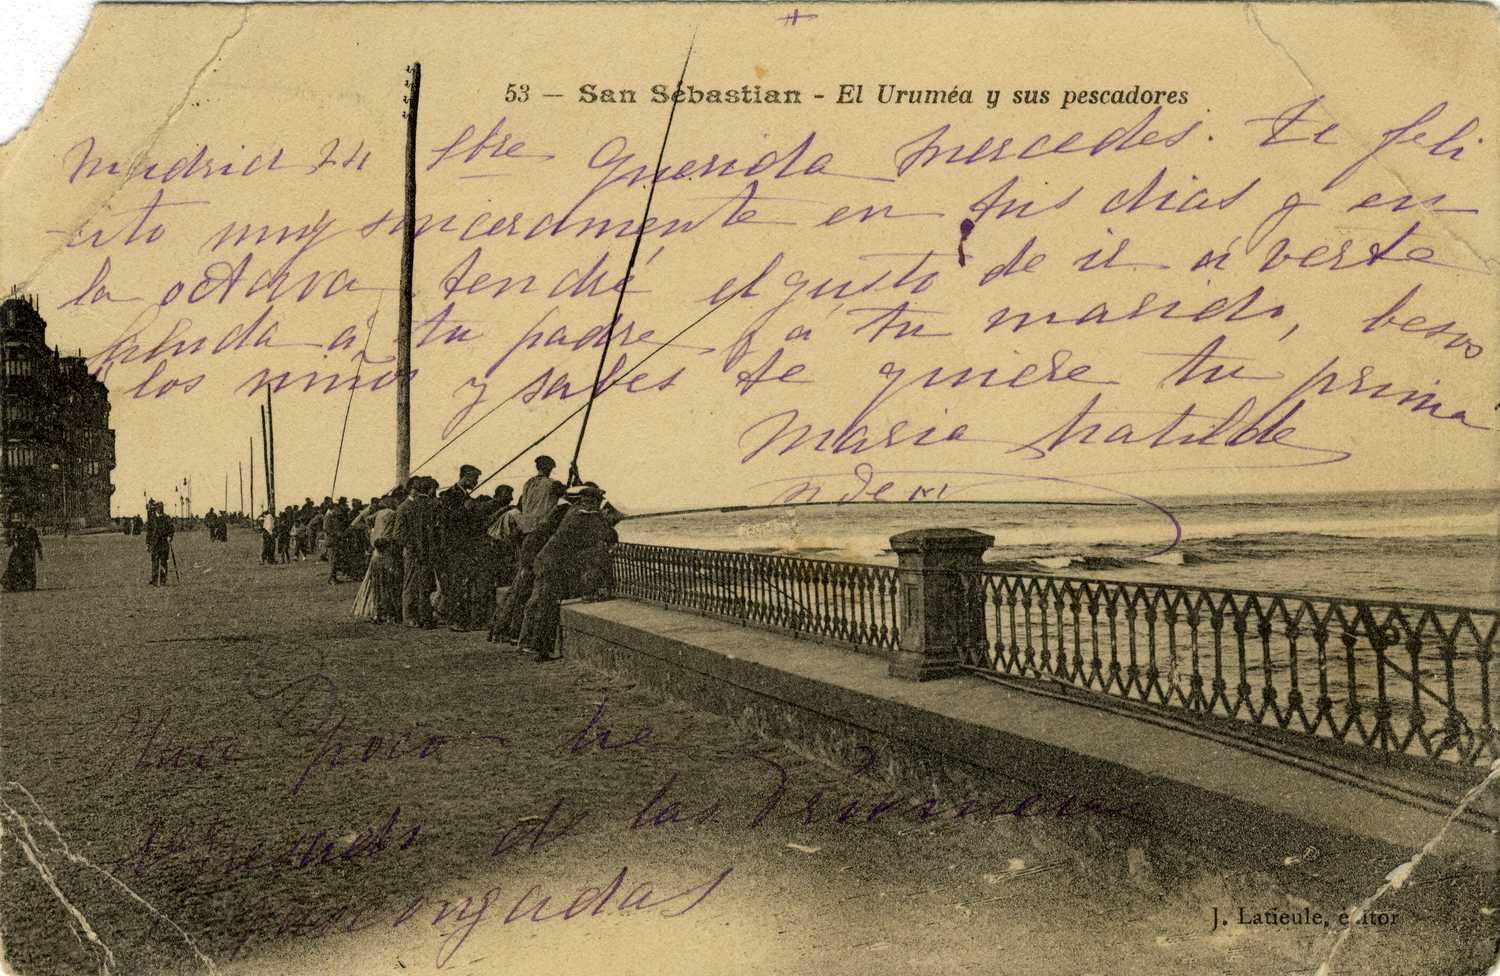 53 — San Sébastian - El Uruméa y sus pescadores
Madrid 24 7bre Querida Mercedes. Te feli
cito muy sinceramente en tus dias y en
la octava tendré el gusto de ir á verte
saluda á tu padre y á tu marido, besos
á los niños y sabes te quiere tu prima
Maria Matilde
hace poco he
de las
vascongadas
J. Latieule, éditor